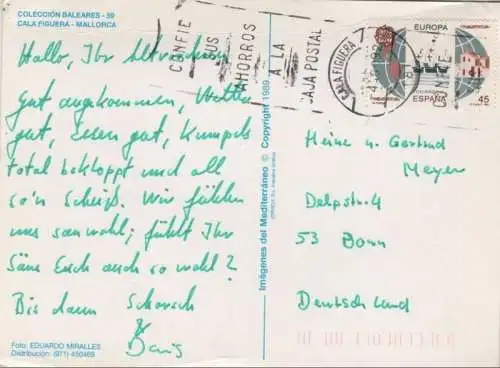 COLECCIÓN BALEARES - 59
CALA FIGUERA - MALLORCA
Hallo, Ihr
gut angekommen, Wetter
gut, Essen gut, Kumpels
total bekloppt und all
so'n Scheiß. Wir fühlen
uns sauwohl; fühlt Ihr
Säue Euch auch so wohl?
Bis dann Schorsch
&
Foto: EDUARDO MIRALLES
Distribución: (971) 450469
Imágenes del Mediterráneo © Copyright 1989
CONFIE
SUS
AHORROS
A LA
CAJA POSTAL
CALA FIGUERA
EUROPA
ESPAÑA
45
Heinz u. Gertrud
Meyer
Delpstr. 4
53 Bonn
Deutschland